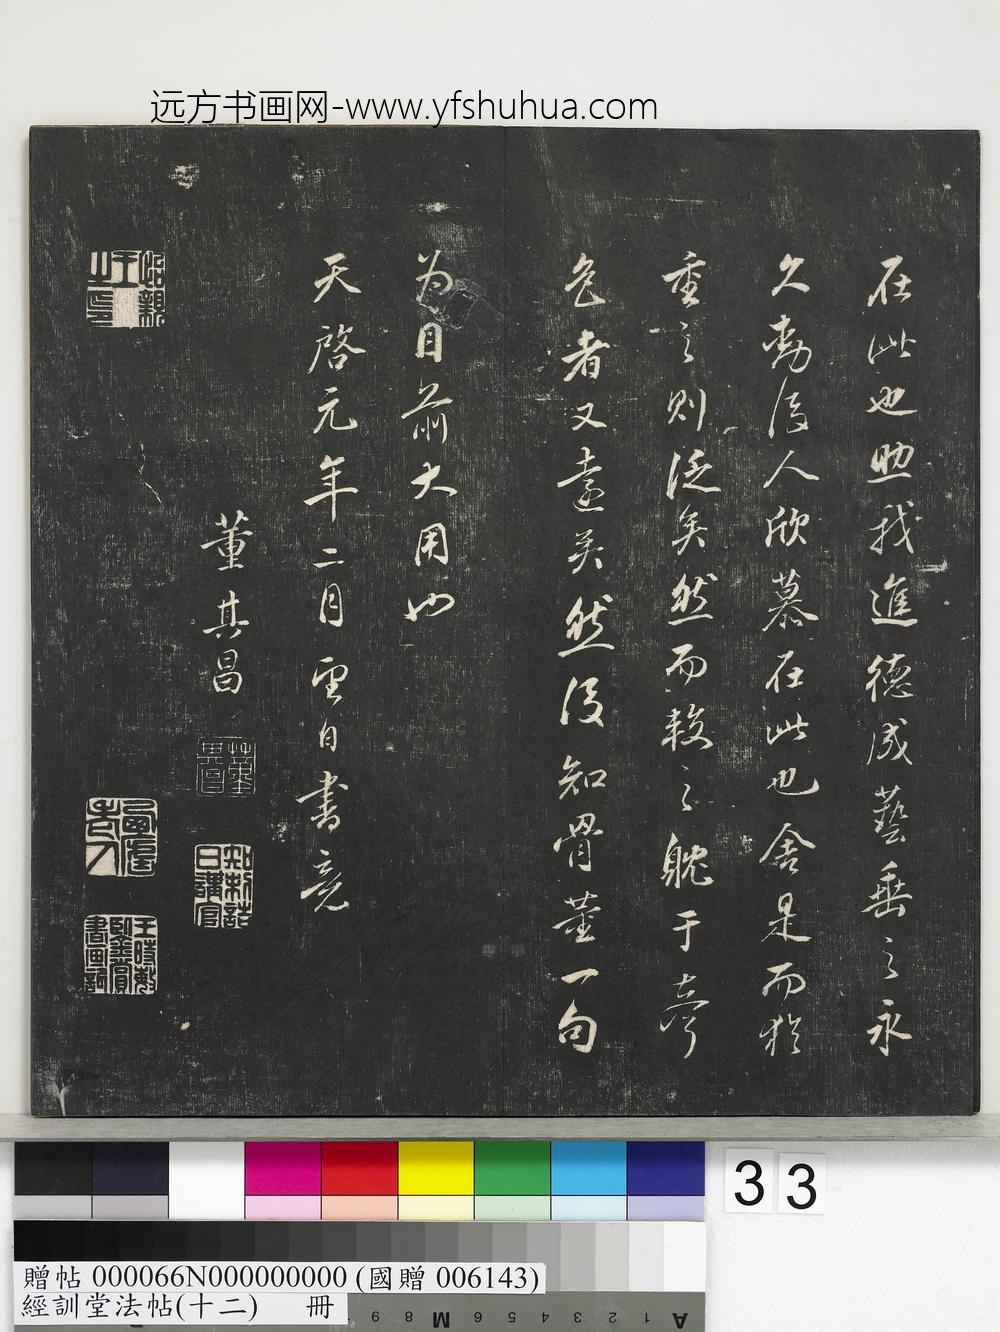 远方书画网-www.yfshuhua.com
在此也助我進德成藝垂之永
久動後人欣慕在此也舍是而珍
重之則泛矣然而較之躭于聲
色者又遠矣然後知骨董一句
为目前大用也
天啓元年二月望日書竟
董其昌
知制誥日講官
怡親王之印
33
贈帖 000066N000000000 (國贈 006143)
經訓堂法帖(十二) 冊